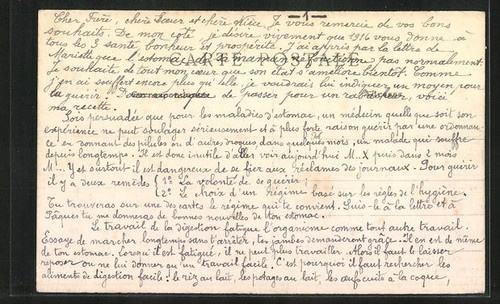 — 1 —
Cher Frère, chère Sœur et chère Nièce, Je vous remercie de vos bons
souhaits. De mon côté je désire vivement que 1916 vous donne à
tous les 3 santé bonheur et prospérité. J'ai appris par la lettre de
que l'estomac de la maman ne fonctionne pas normalement.
Je souhaite de tout mon cœur que son état s'améliore bientôt. Comme
j'en ai souffert encore plus qu'elle je voudrais lui indiquer un moyen pour
la guérir. de passer pour un voici
ma recette.
Sois persuadée que pour les maladies d'estomac, un médecin quelle que soit son
expérience ne peut soulager sérieusement et à plus forte raison guérir par une ordonnan-
ce en donnant des pilules ou d'autres drogues dans quelques mois, un malade qui souffre
depuis longtemps. Il est donc inutile d'aller voir aujourd'hui M. X puis dans 2 mois
M. Y et surtout il est dangereux de se fier aux réclames des journaux. Pour guérir
il y a deux remèdes 1° La volonté de se guérir;
2° Le choix du régime basé sur les règles de l'hygiène.
Tu trouveras sur une des cartes le régime qui te convient. Suis-le à la lettre et à
Pâques tu me donneras de bonnes nouvelles de ton estomac.
Le travail de la digestion fatigue l'organisme comme tout autre travail.
Essaye de marcher longtemps sans t'arrêter, tes jambes demanderont grâce. Il en est de même
de ton estomac. Lorsqu'il est fatigué, il ne peut plus travailler. Alors il faut le laisser
reposer ou ne lui donner qu'un travail facile. C'est pourquoi il faut rechercher les
aliments de digestion facile: le riz au lait, les potages au lait, les œufs cuits à la coque,